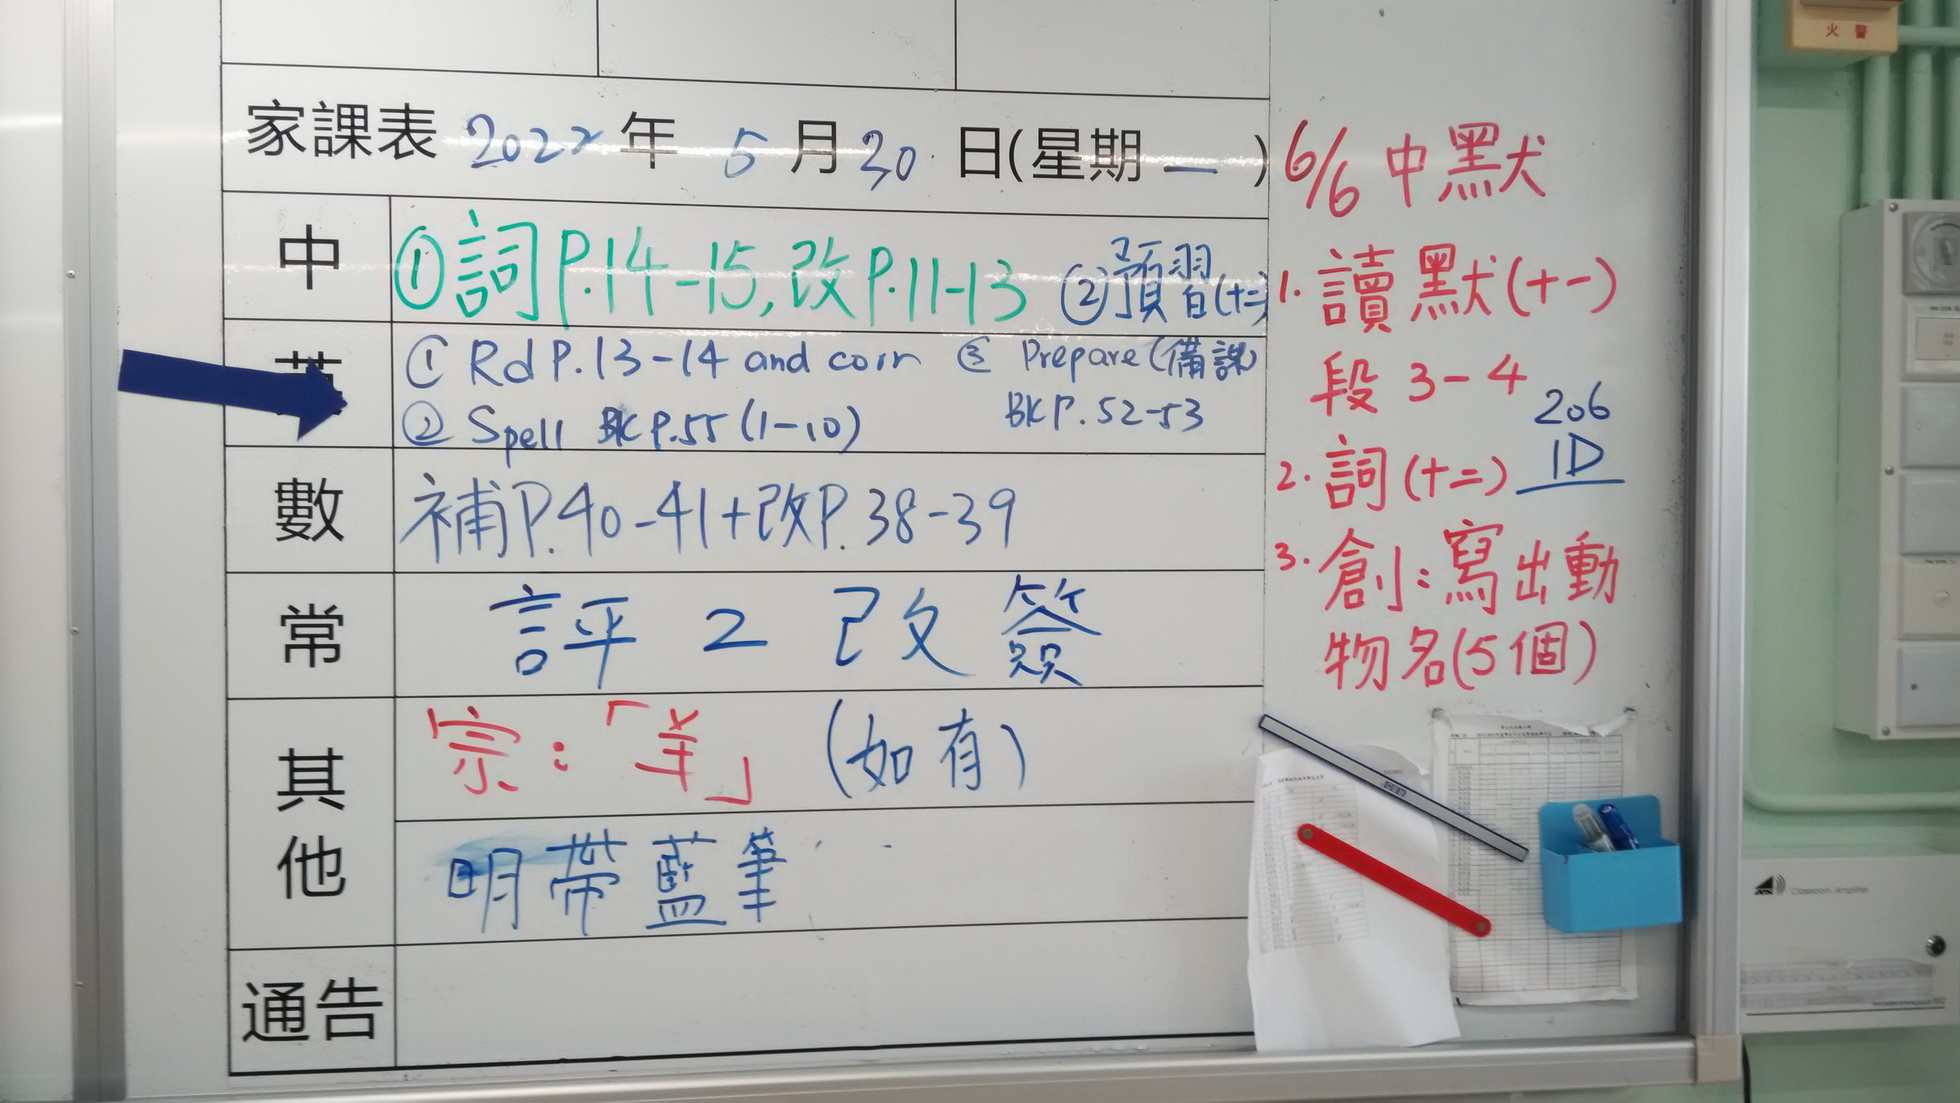 家課表 2022 年 5 月 30 日(星期 一 )
中 ①詞P.14-15,改P.11-13 ②預習(十二
① Rd P.13-14 and corr ③ Prepare(備課)
② Spell BK P.55 (1-10) BK P.52-53
數 補P.40-41+改P.38-39
常 評 2 改 簽
其他
宗:「羊」 (如有)
明帶藍筆
通告
6/6 中默
1. 讀默(十一)
段 3-4
2. 詞(十二)
3. 創:寫出動
物名(5個)
206
1D
火警
Classroom Amplifier